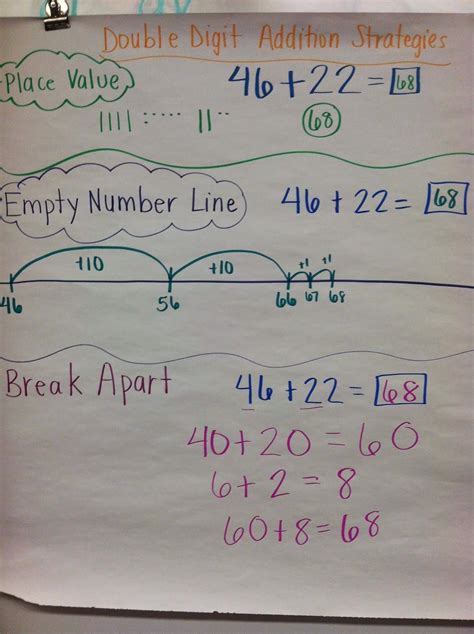 Double Digit Addition Strategies
Place Value
46+22=68
68
Empty Number Line
46+22=68
+10 +10 +1 +1
46 56 66 67 68
Break Apart
46+22=68
40+20=60
6+2=8
60+8=68